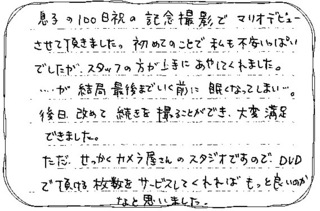 息子の100日祝の記念撮影でマリオデビュー
させて頂きました。初めてのことで私も不安いっぱい
でしたが、スタッフの方が上手にあやしてくれました。
…が結局最後までいく前に眠くなってしまい…。
後日、改めて続きを撮ることができ、大変満足
できました。
ただ、せっかくカメラ屋さんのスタジオですので、DVD
で頂ける枚数をサービスしてくれればもっと良いのが
なと思いました。